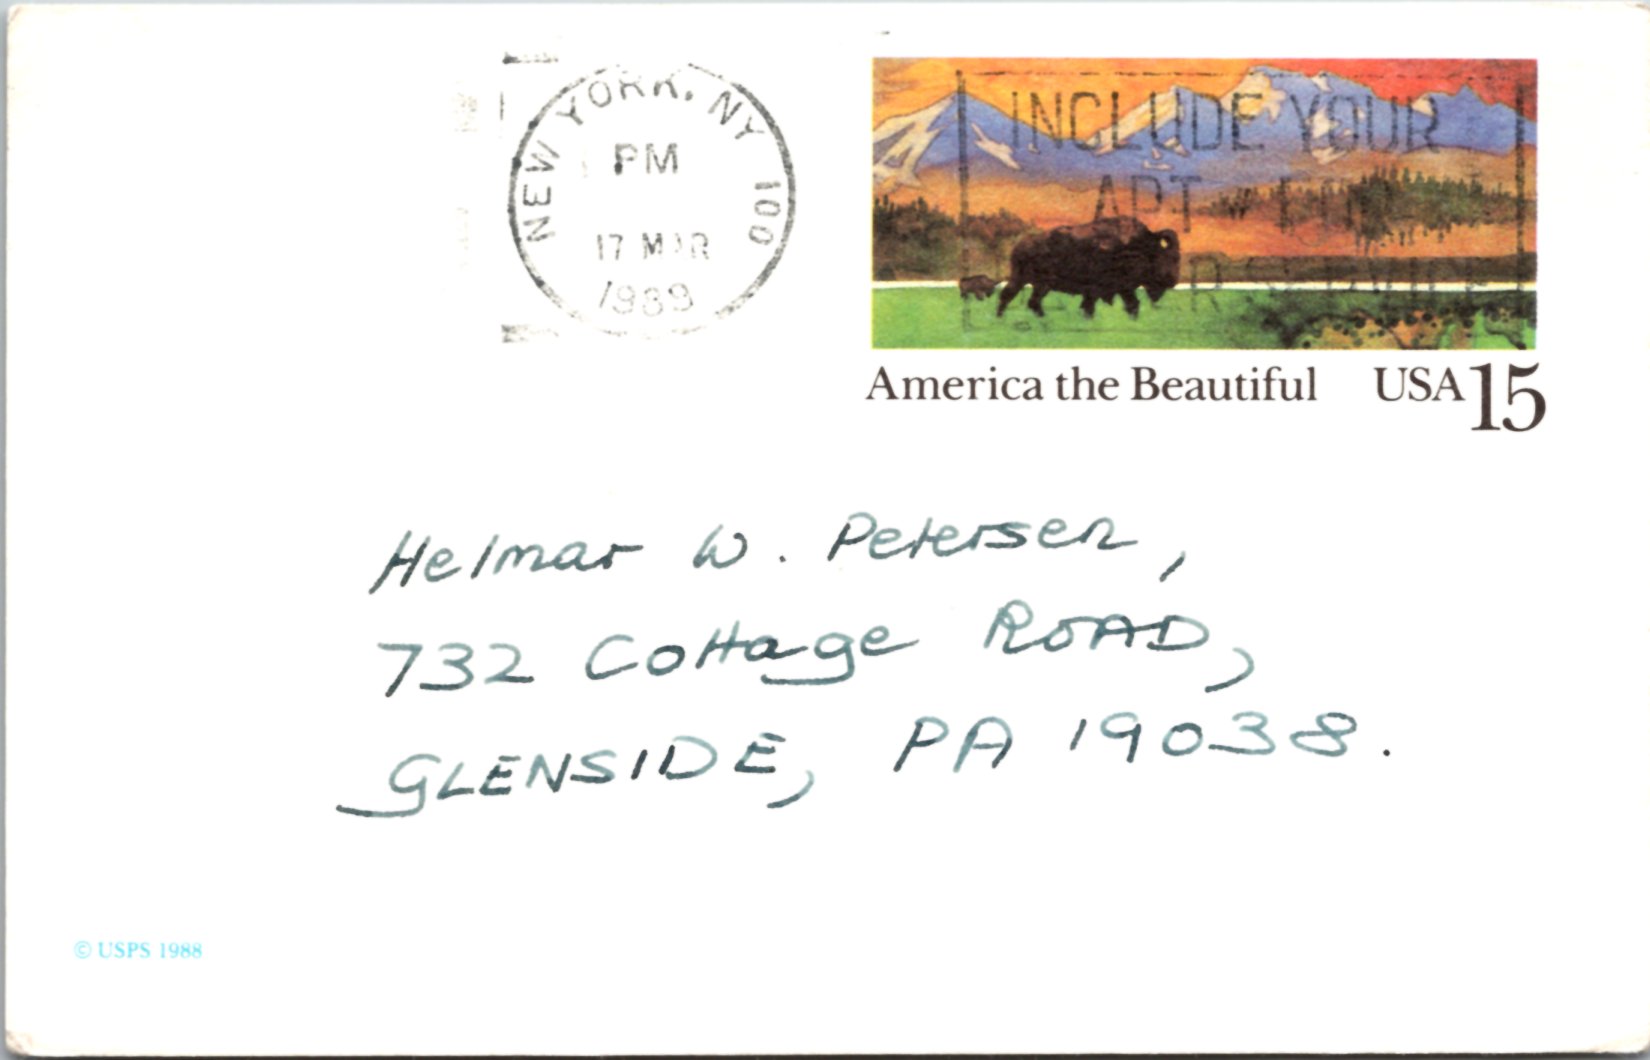 NEW YORK, NY 100
PM
17 MAR
1989
INCLUDE YOUR
APT
America the Beautiful USA 15
Helmar W. Petersen,
732 Cottage ROAD,
GLENSIDE, PA 19038.
© USPS 1988